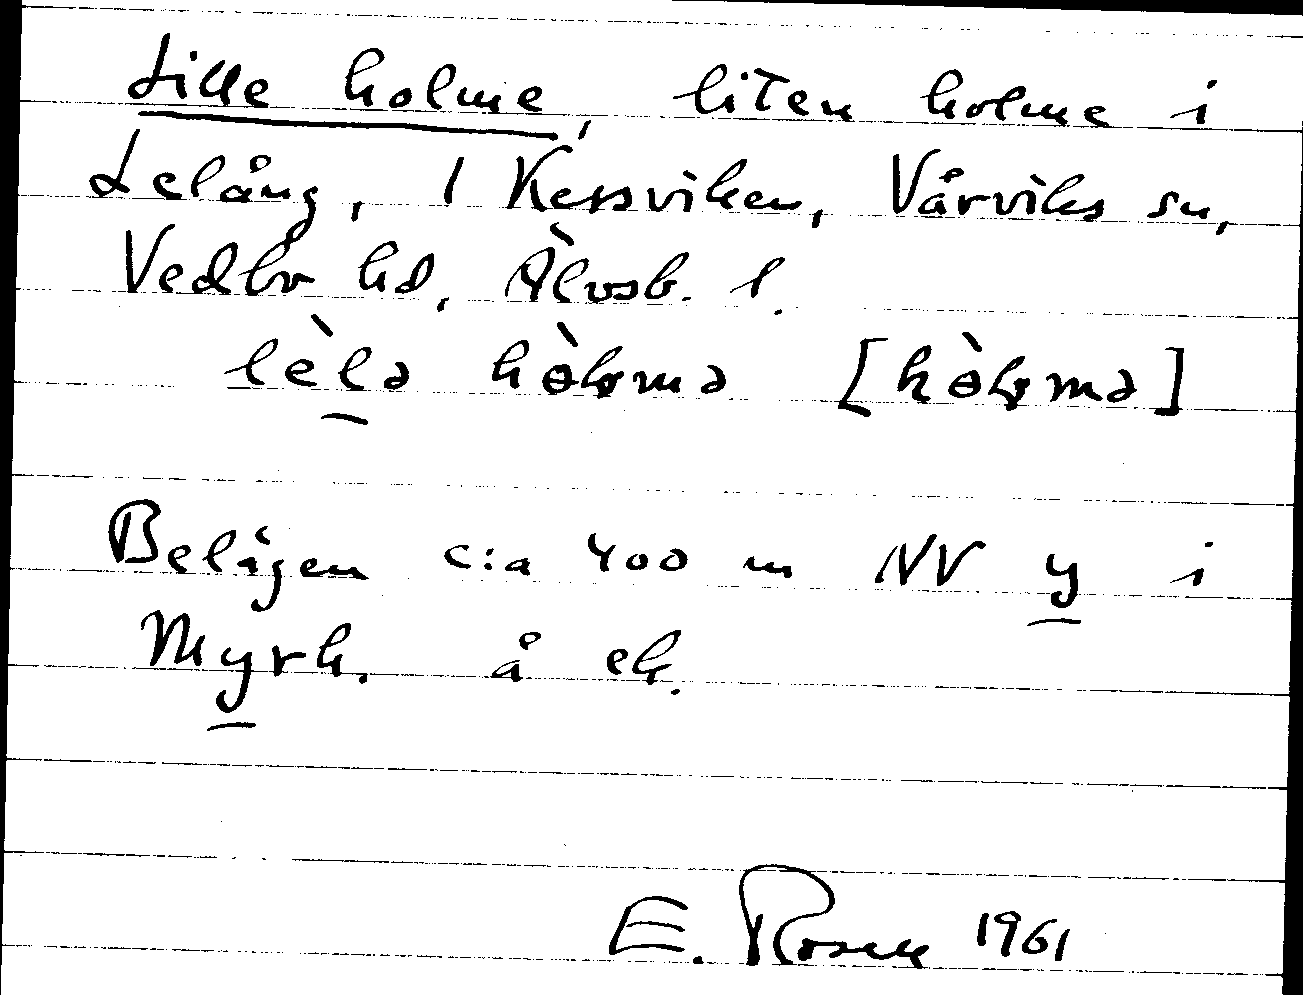 Lille holme, liten holme i
Lelång, 1 Kessviken, Vårviks sn,
Vedbo hd, Älvsb. l.
lèlə hòlmə [hòlmə]
Belägen c:a 400 m NV y i
Myrh. å ek.
E. Rosen 1961